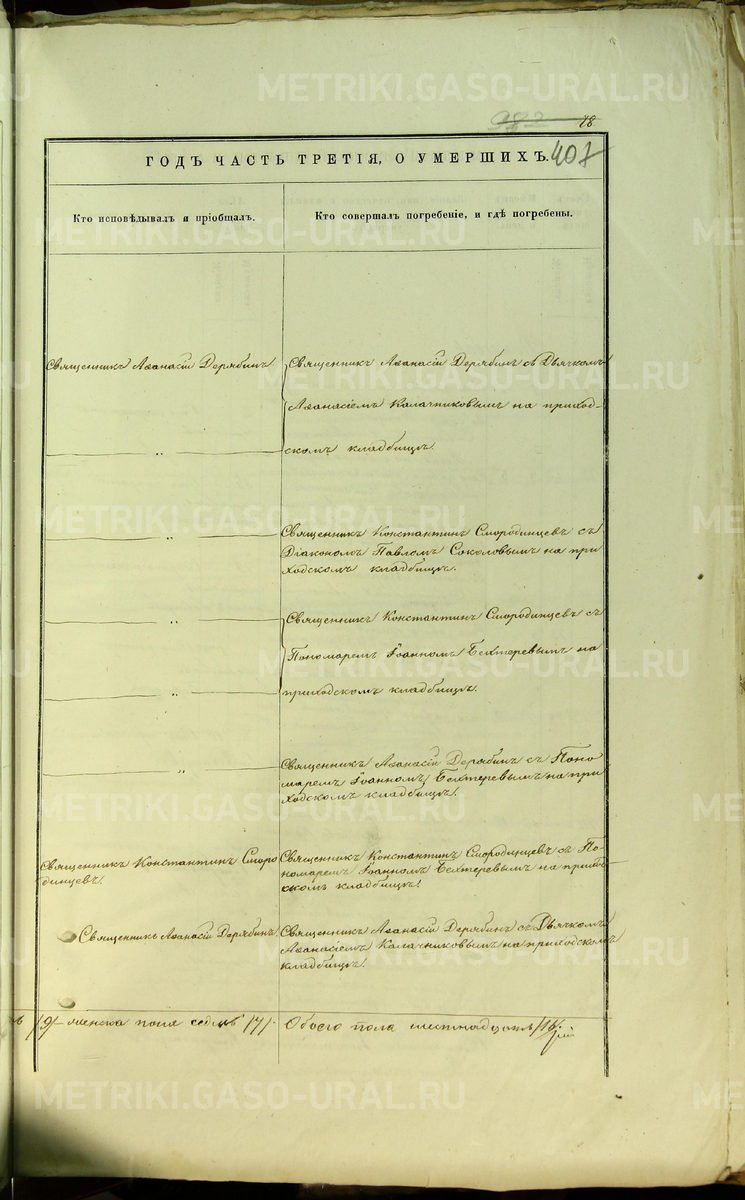 METRIKI.GASO-URAL.RU
78
407
ГОДЪ ЧАСТЬ ТРЕТІЯ, О УМЕРШИХЪ.
Кто исповѣдывалъ и пріобщалъ.
Кто совершалъ погребеніе, и гдѣ погребены.
Священникъ Аѳанасій Дерябинъ
Священникъ Аѳанасій Дерябинъ съ Дьячкомъ
Аѳанасіемъ Калачниковымъ на приход-
скомъ кладбищѣ.
Священникъ Константинъ Смородинцевъ съ
Діакономъ Павломъ Соколовымъ на при
ходскомъ кладбищѣ.
Священникъ Константинъ Смородинцевъ съ
Пономаремъ Іоанномъ Бехтеревымъ на
приходскомъ кладбищѣ.
Священникъ Аѳанасій Дерябинъ съ Поно
маремъ Іоанномъ Бехтеревымъ на при
ходскомъ кладбищѣ.
Священникъ Константинъ Сморо
динцевъ.
Священникъ Константинъ Смородинцевъ съ По-
номаремъ Іоанномъ Бехтеревымъ на
скомъ кладбищѣ
Священникъ Аѳанасій Дерябинъ
Священникъ Аѳанасій Дерябинъ съ Дьячкомъ
Аѳанасіемъ Калачниковымъ на приходскомъ
кладбищѣ.
/9/ женска пола седмь /7/.
Обоего пола шестнадцать /16/